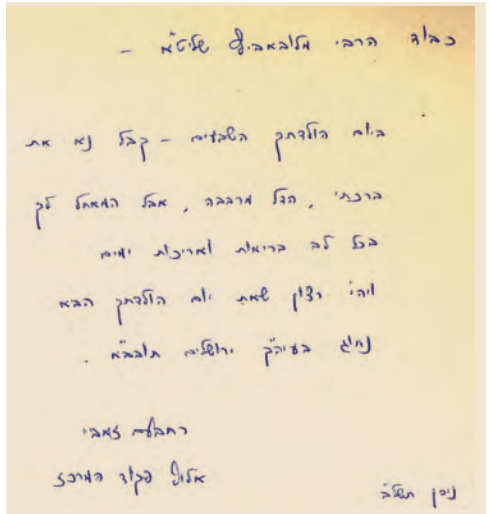 כבוד הרבי מלובאביץ שליט"א –
ביום הולדתך השבעים – קבל נא את
ברכתי, הדל מרבבה, אבל המאחל לך
בכל לב בריאות ואריכות ימים
ויהי רצון שאת יום הולדתך הבא
נחוג בעיה"ק ירושלים תובב"א.
רחבעם זאבי
אלוף פקוד המרכז
ניסן תשל"ב